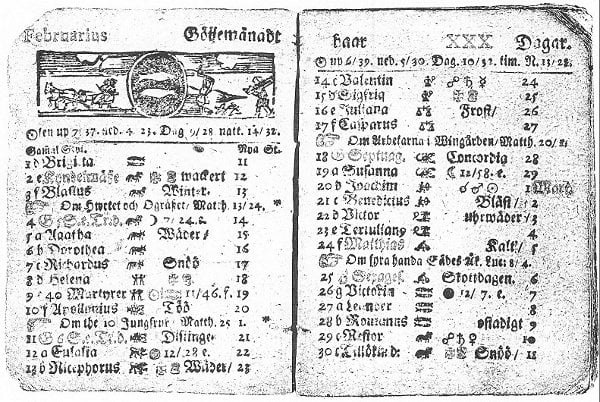 Februarius Götjemånadt
Solen up 7/37. ned. 4/23. Dag 9/28 natt. 14/32.
Gamel Styl. Nya St.
1 d Brigitta 11
2 e wackert 12
3 f Blasius Winter. 13
Om Hwetet och Ogräset/ Matth. 13/24.
4 G 7/24. e. 14
5 a Agatha Wäder/ 15
6 b Dorothea 16
7 c Richardus Snöö 17
8 d Helena 18
9 e 40 Martyrer 11/46. f. 19
10 f Apollonius Töö 20
Om the 10 Jungfrur Matth. 25 1.
11 G 21
12 a Eulalia 12/28 e. 22
13 b Nicephorus Wäder/ 23
haar XXX Dagar.
up 6/39. ned. 5/30. Dag. 10/32. tim. N. 13/28.
14 c Valentin ☍ ♄ ☿ 24
15 d Sigfrid 25
16 e Juliana Frost/ 26
17 f 27
Om Arbetarna i Wingården/ Matth. 20/2.
18 G Septuag. Concordia 28
19 a Susanna ☾ 12/58. e. 29
20 b Joachim ☍ ♂ ☉ 1 Mart.
21 c Benedictus Bläst/ 2
22 d Victor uhrwäder/ 3
23 e 4
24 f Matthias Kalt/ 5
Om fyra handa Sädes Åk. Luc: 8/4.
25 G Sexages. Skottdagen. 6
26 g Victorin ● 12/7. e. 7
27 a Leander 8
28 b Romanus ostadigt 9
29 c Nestor ☍ ♄ ♀ 10
30 c Snöö/ 11